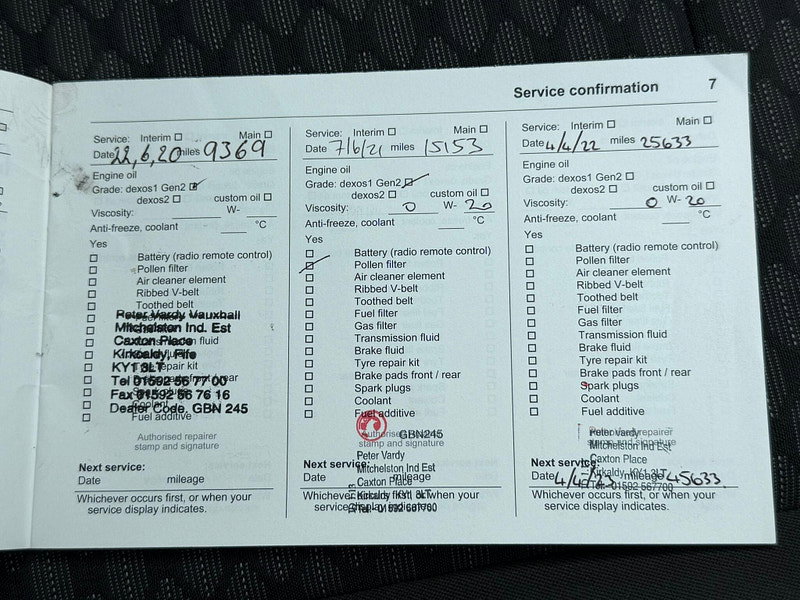 Service confirmation 7
Service: Interim Main
Date 22,6,20 miles 9369
Engine oil
Grade: dexos1 Gen2
dexos2 custom oil
Viscosity: W-
Anti-freeze, coolant °C
Yes
Battery (radio remote control)
Pollen filter
Air cleaner element
Ribbed V-belt
Toothed belt
Peter Vardy Vauxhall
Mitchelston Ind. Est
Caxton Place
Kirkcaldy, Fife
KY1 3LT
Tel 01592 56 77 00
Fax 01592 56 76 16
Dealer Code. GBN 245
Coolant
Fuel additive
Authorised repairer
stamp and signature
Next service:
Date mileage
Whichever occurs first, or when your
service display indicates.
Service: Interim Main
Date 7/6/21 miles 15153
Engine oil
Grade: dexos1 Gen2
dexos2 custom oil
Viscosity: 0 W- 20
Anti-freeze, coolant °C
Yes
Battery (radio remote control)
Pollen filter
Air cleaner element
Ribbed V-belt
Toothed belt
Fuel filter
Gas filter
Transmission fluid
Brake fluid
Tyre repair kit
Brake pads front / rear
Spark plugs
Coolant
Fuel additive
GBN245
stamp and signature
Peter Vardy
Mitchelston Ind Est
Caxton Place
Next service:
Date mileage
Whichever occurs first, or when your
Kirkcaldy KY1 3LT
Tel - 01592 567700
Service: Interim Main
Date 4/4/22 miles 25633
Engine oil
Grade: dexos1 Gen2
dexos2 custom oil
Viscosity: 0 W- 20
Anti-freeze, coolant °C
Yes
Battery (radio remote control)
Pollen filter
Air cleaner element
Ribbed V-belt
Toothed belt
Fuel filter
Gas filter
Transmission fluid
Brake fluid
Tyre repair kit
Brake pads front / rear
Spark plugs
Coolant
Fuel additive
Peter Vardy
Mitchelston Ind Est
Caxton Place
Kirkcaldy, KY1 3LT
Tel - 01592 567700
Next service:
Date 4/4/23 mileage 45633
Whichever occurs first, or when your
service display indicates.